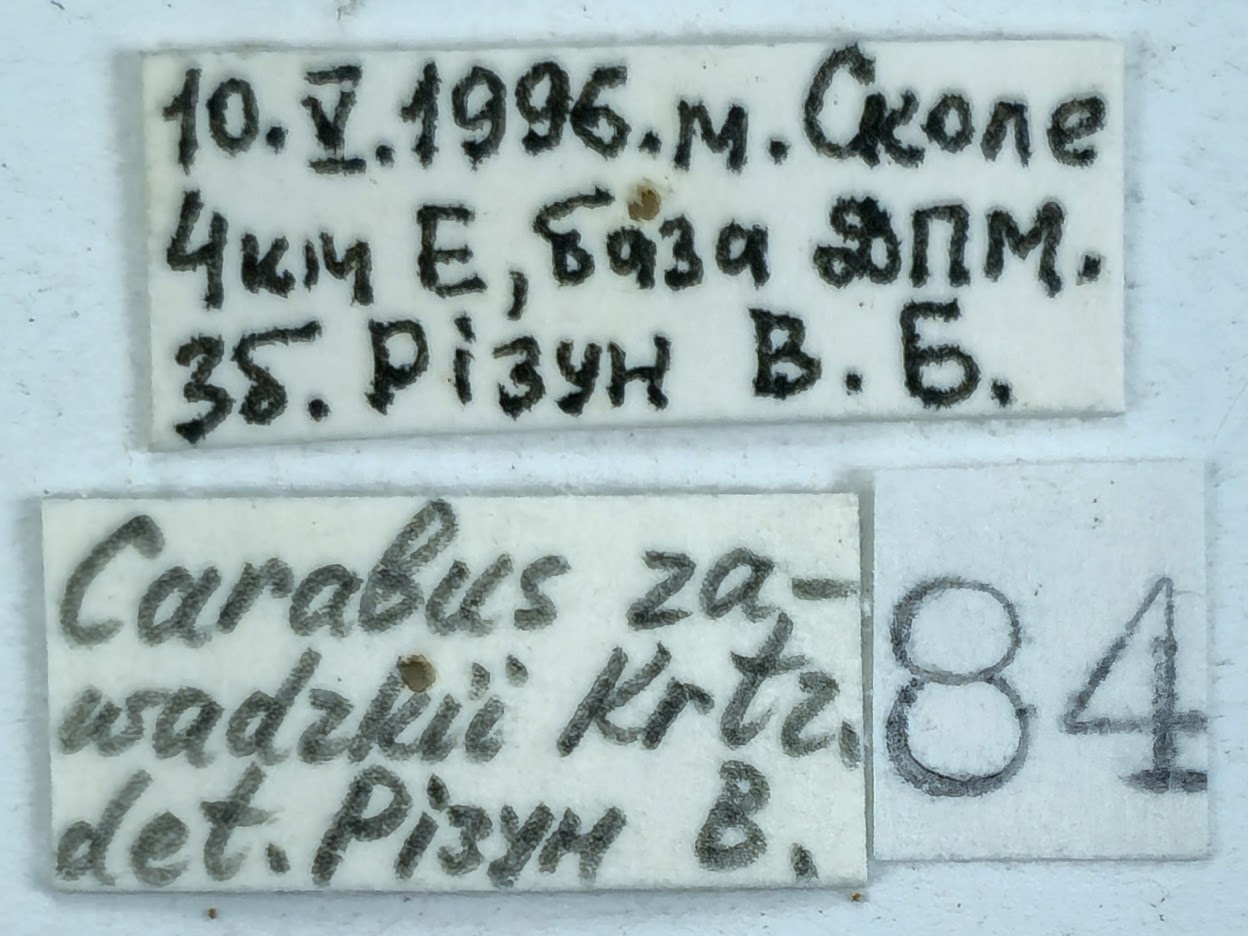 10.V.1996.м.Сколе
4км Е, база ДПМ.
зб. Різун В.Б.
Carabus za-
wadzkii Krtz.
det. Різун В.
84